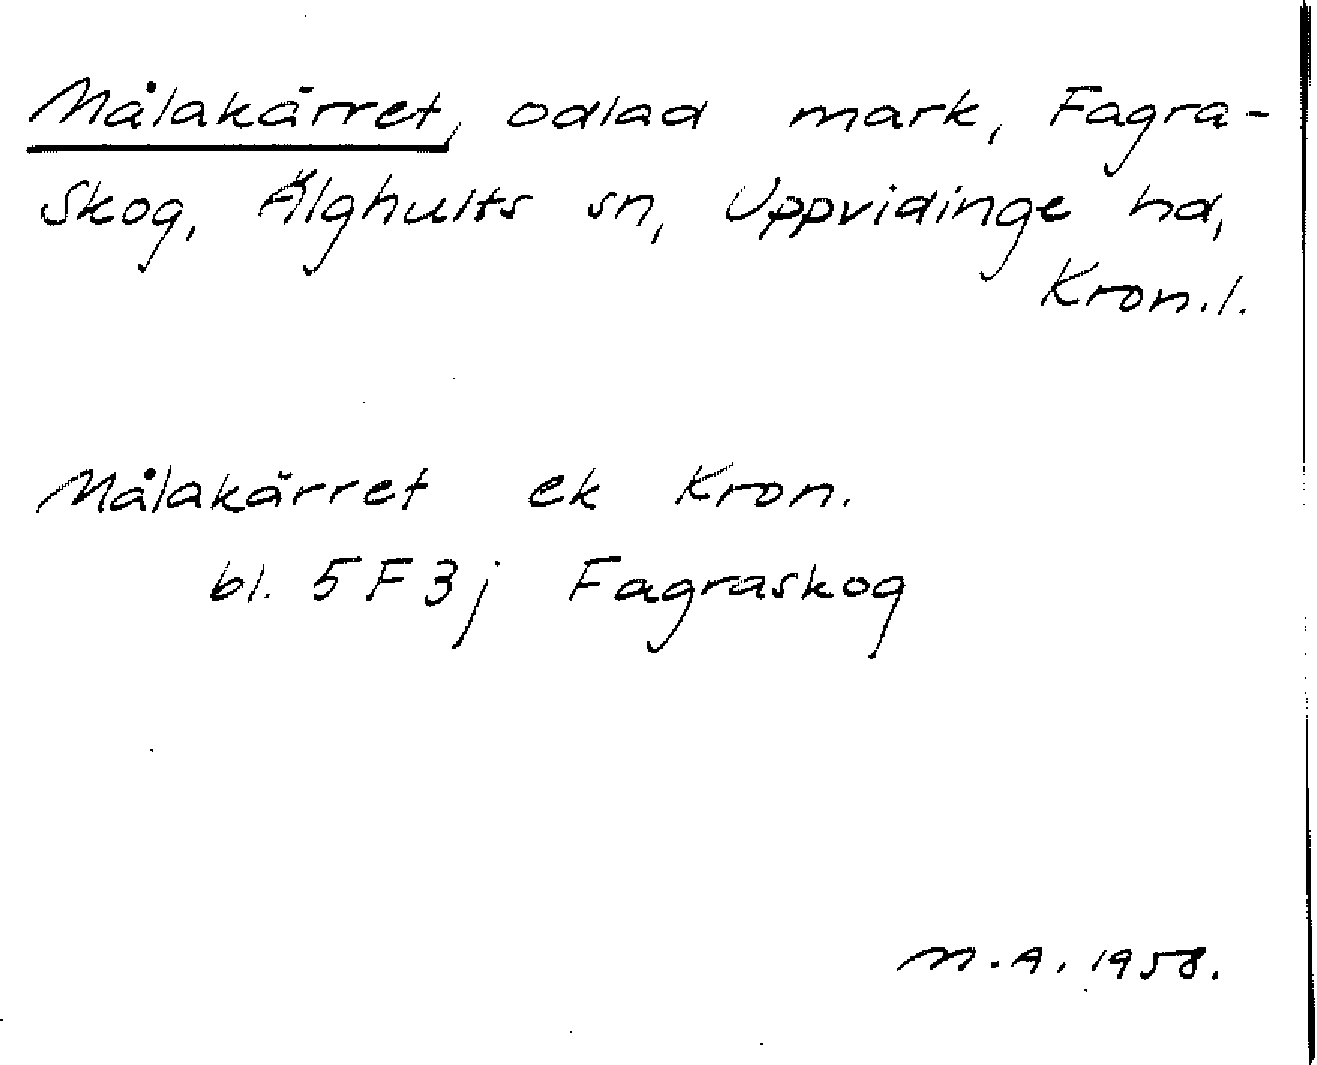 Målakärret, odlad mark, Fagra-
skog, Älghults sn, Uppvidinge hd,
Kron.l.
Målakärret ek Kron.
bl. 5F3j Fagraskog
M.A. 1958.